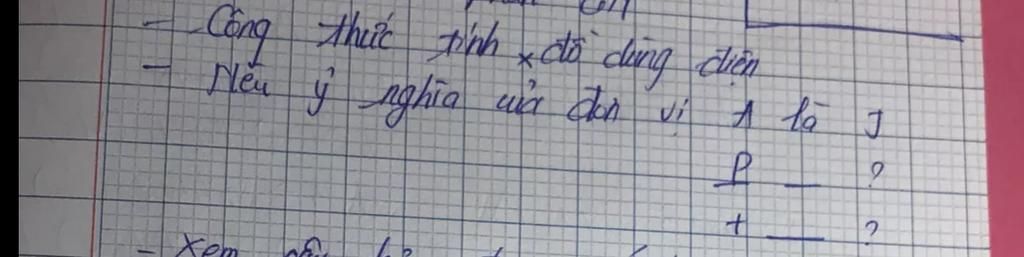 - Công thức tính x độ dòng điện
- Nêu ý nghĩa của đơn vị A là J
P — ?
t — ?
- Xem